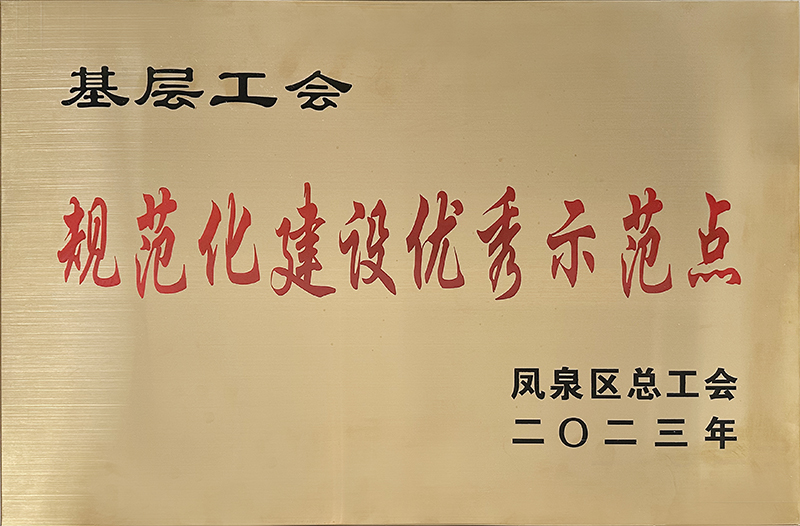 基层工会
规范化建设优秀示范点
凤泉区总工会
二〇二三年